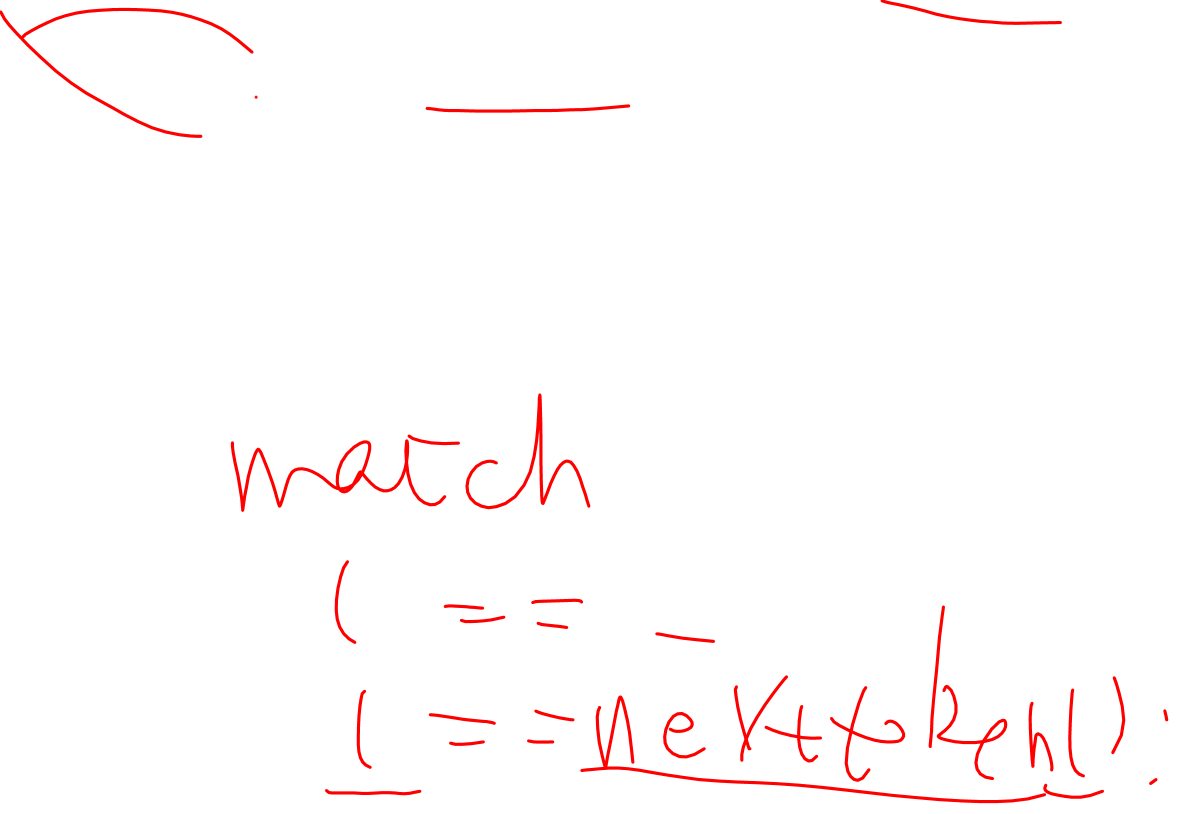 match
( == _
( == nexttoken();